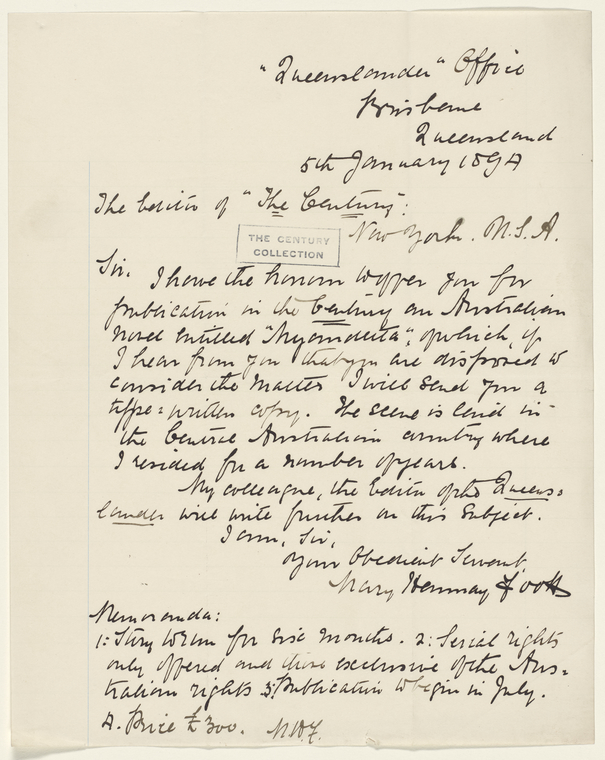 "Queenslander" Office
Brisbane
Queensland
5th January 1894
The Editor of "The Century":
New York. U.S.A.
THE CENTURY
COLLECTION
Sir,
I have the honour to offer you for
publication in the Century an Australian
novel entitled of which, if
I hear from you that you are disposed to
consider the matter I will send you a
type=written copy. The scene is laid in
the Central Australian country where
I resided for a number of years.
My colleague, the Editor of the Queens=
lander will write further on this subject.
I am, Sir,
Your Obedient Servant,
Mary Hannay Foott
Memoranda:
1: Story to run for six months. 2: Serial rights
only offered and those exclusive of the Aus=
tralian rights 3: Publication to begin in July.
4. Price £300. M.H.F.